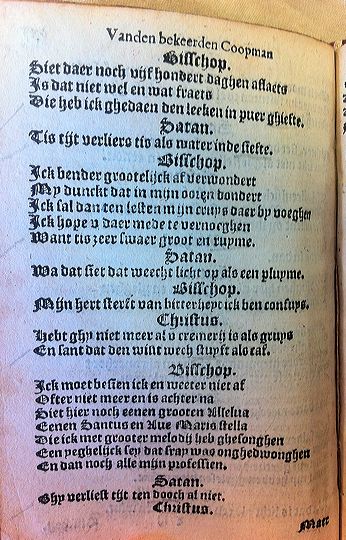 Vanden bekeerden Coopman
Bisschop.
Siet daer noch vijf hondert daghen aflaets
Is dat niet wel en wat fraets
Die heb ick ghedaen den leeken in puer ghiefte.
Satan.
Tis tijt verliers tis als water inde siefte.
Bisschop.
Ick bender grootelijck af verwondert
My dunckt dat in mijn ooren dondert
Ick sal dan ten lesten mijn cruys daer by voeghen
Ick hope v daer mede te vernoeghen
Want tis zeer swaer groot en ruyme.
Satan.
Wa dat siet dat weecht licht op als een pluyme.
Bisschop.
Mijn hert sterft van bitterheyt ick ben confuys.
Christus.
Hebt ghy niet meer al v cremerij is als gruys
En sant dat den wint wech stuyft als caf.
Bisschop.
Ick moet bessen ick en weeter niet af
Ofter niet meer en is achter na
Siet hier noch eenen grooten Alleluia
Eenen Santus en Aue Maris stella
Die ick met grooter melodij heb ghesonghen
Een yeghelijck sey dat fray was onghedwonghen
En dan noch alle mijn professien.
Satan.
Ghy verliest tijt ten dooch al niet.
Christus.
Maer